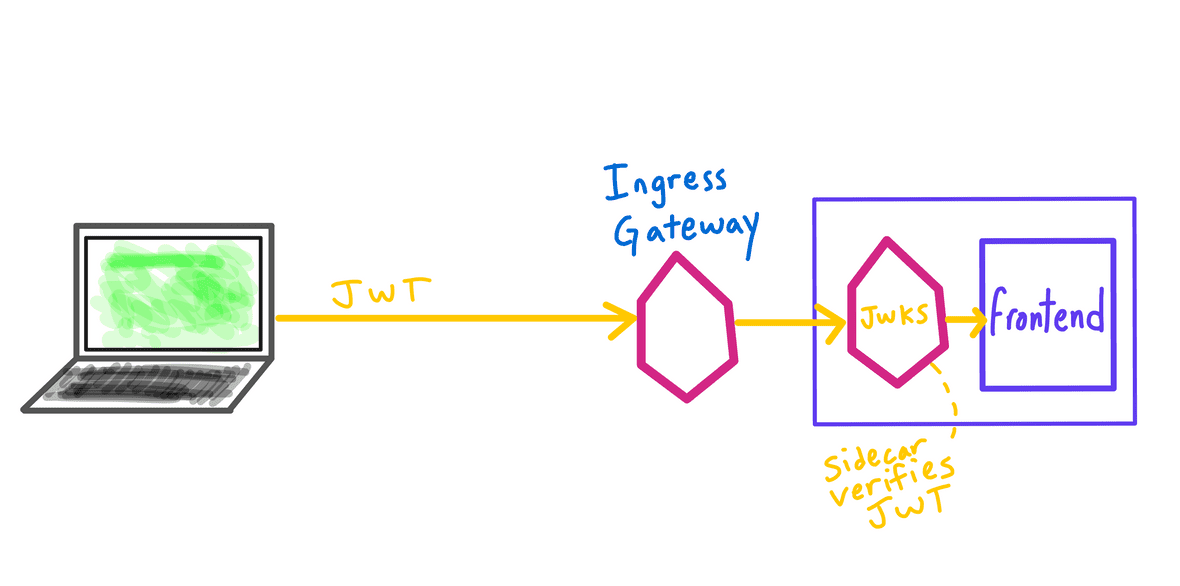 Ingress
Gateway
JWT
JWKS
frontend
sidecar
verifies
JWT